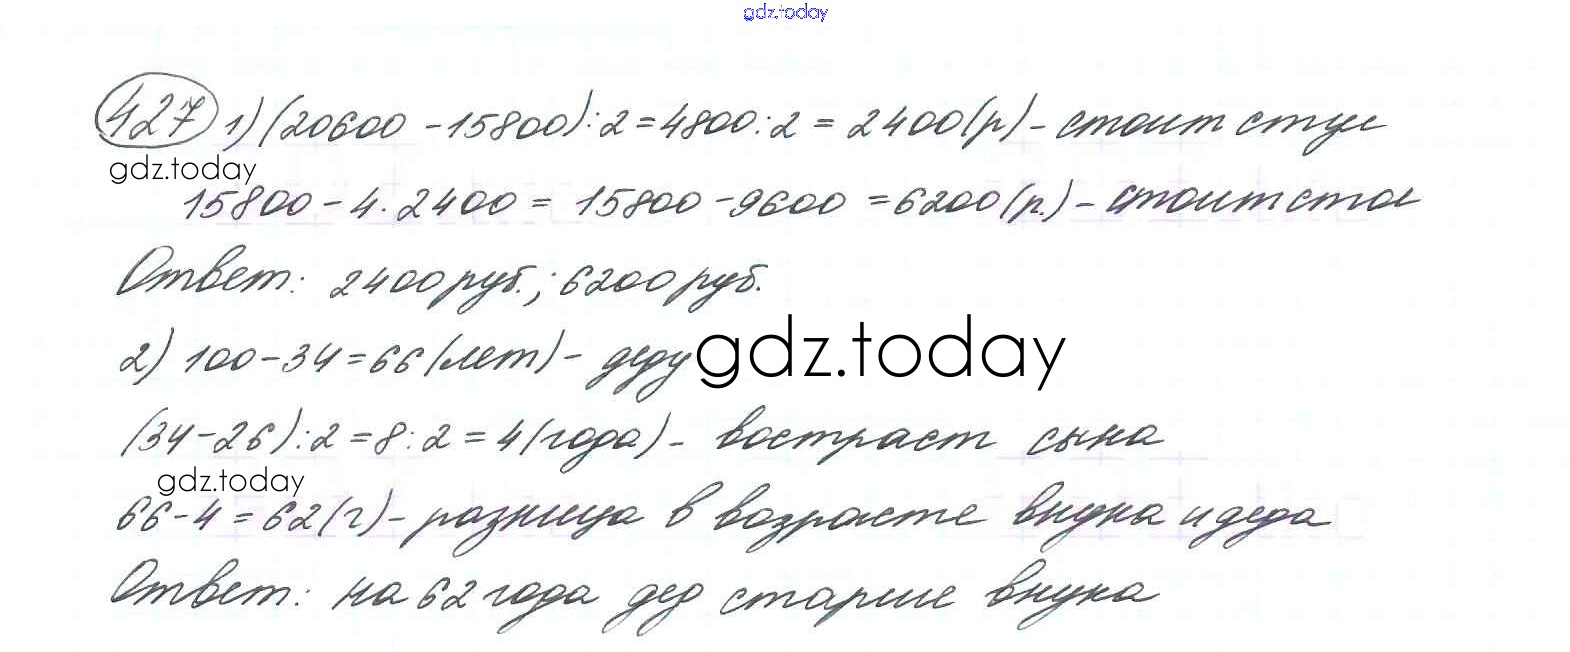 gdz.today
427 1) (20600 - 15800) : 2 = 4800 : 2 = 2400 (р) - стоит стул
gdz.today
15800 - 4 · 2400 = 15800 - 9600 = 6200 (р.) - стоит стол
Ответ: 2400 руб.; 6200 руб.
2) 100 - 34 = 66 (лет) - деду
gdz.today
(34 - 26) : 2 = 8 : 2 = 4 (года) - востраст сына
gdz.today
66 - 4 = 62 (г) - разница в возрасте внука и деда
Ответ: на 62 года дед старше внука